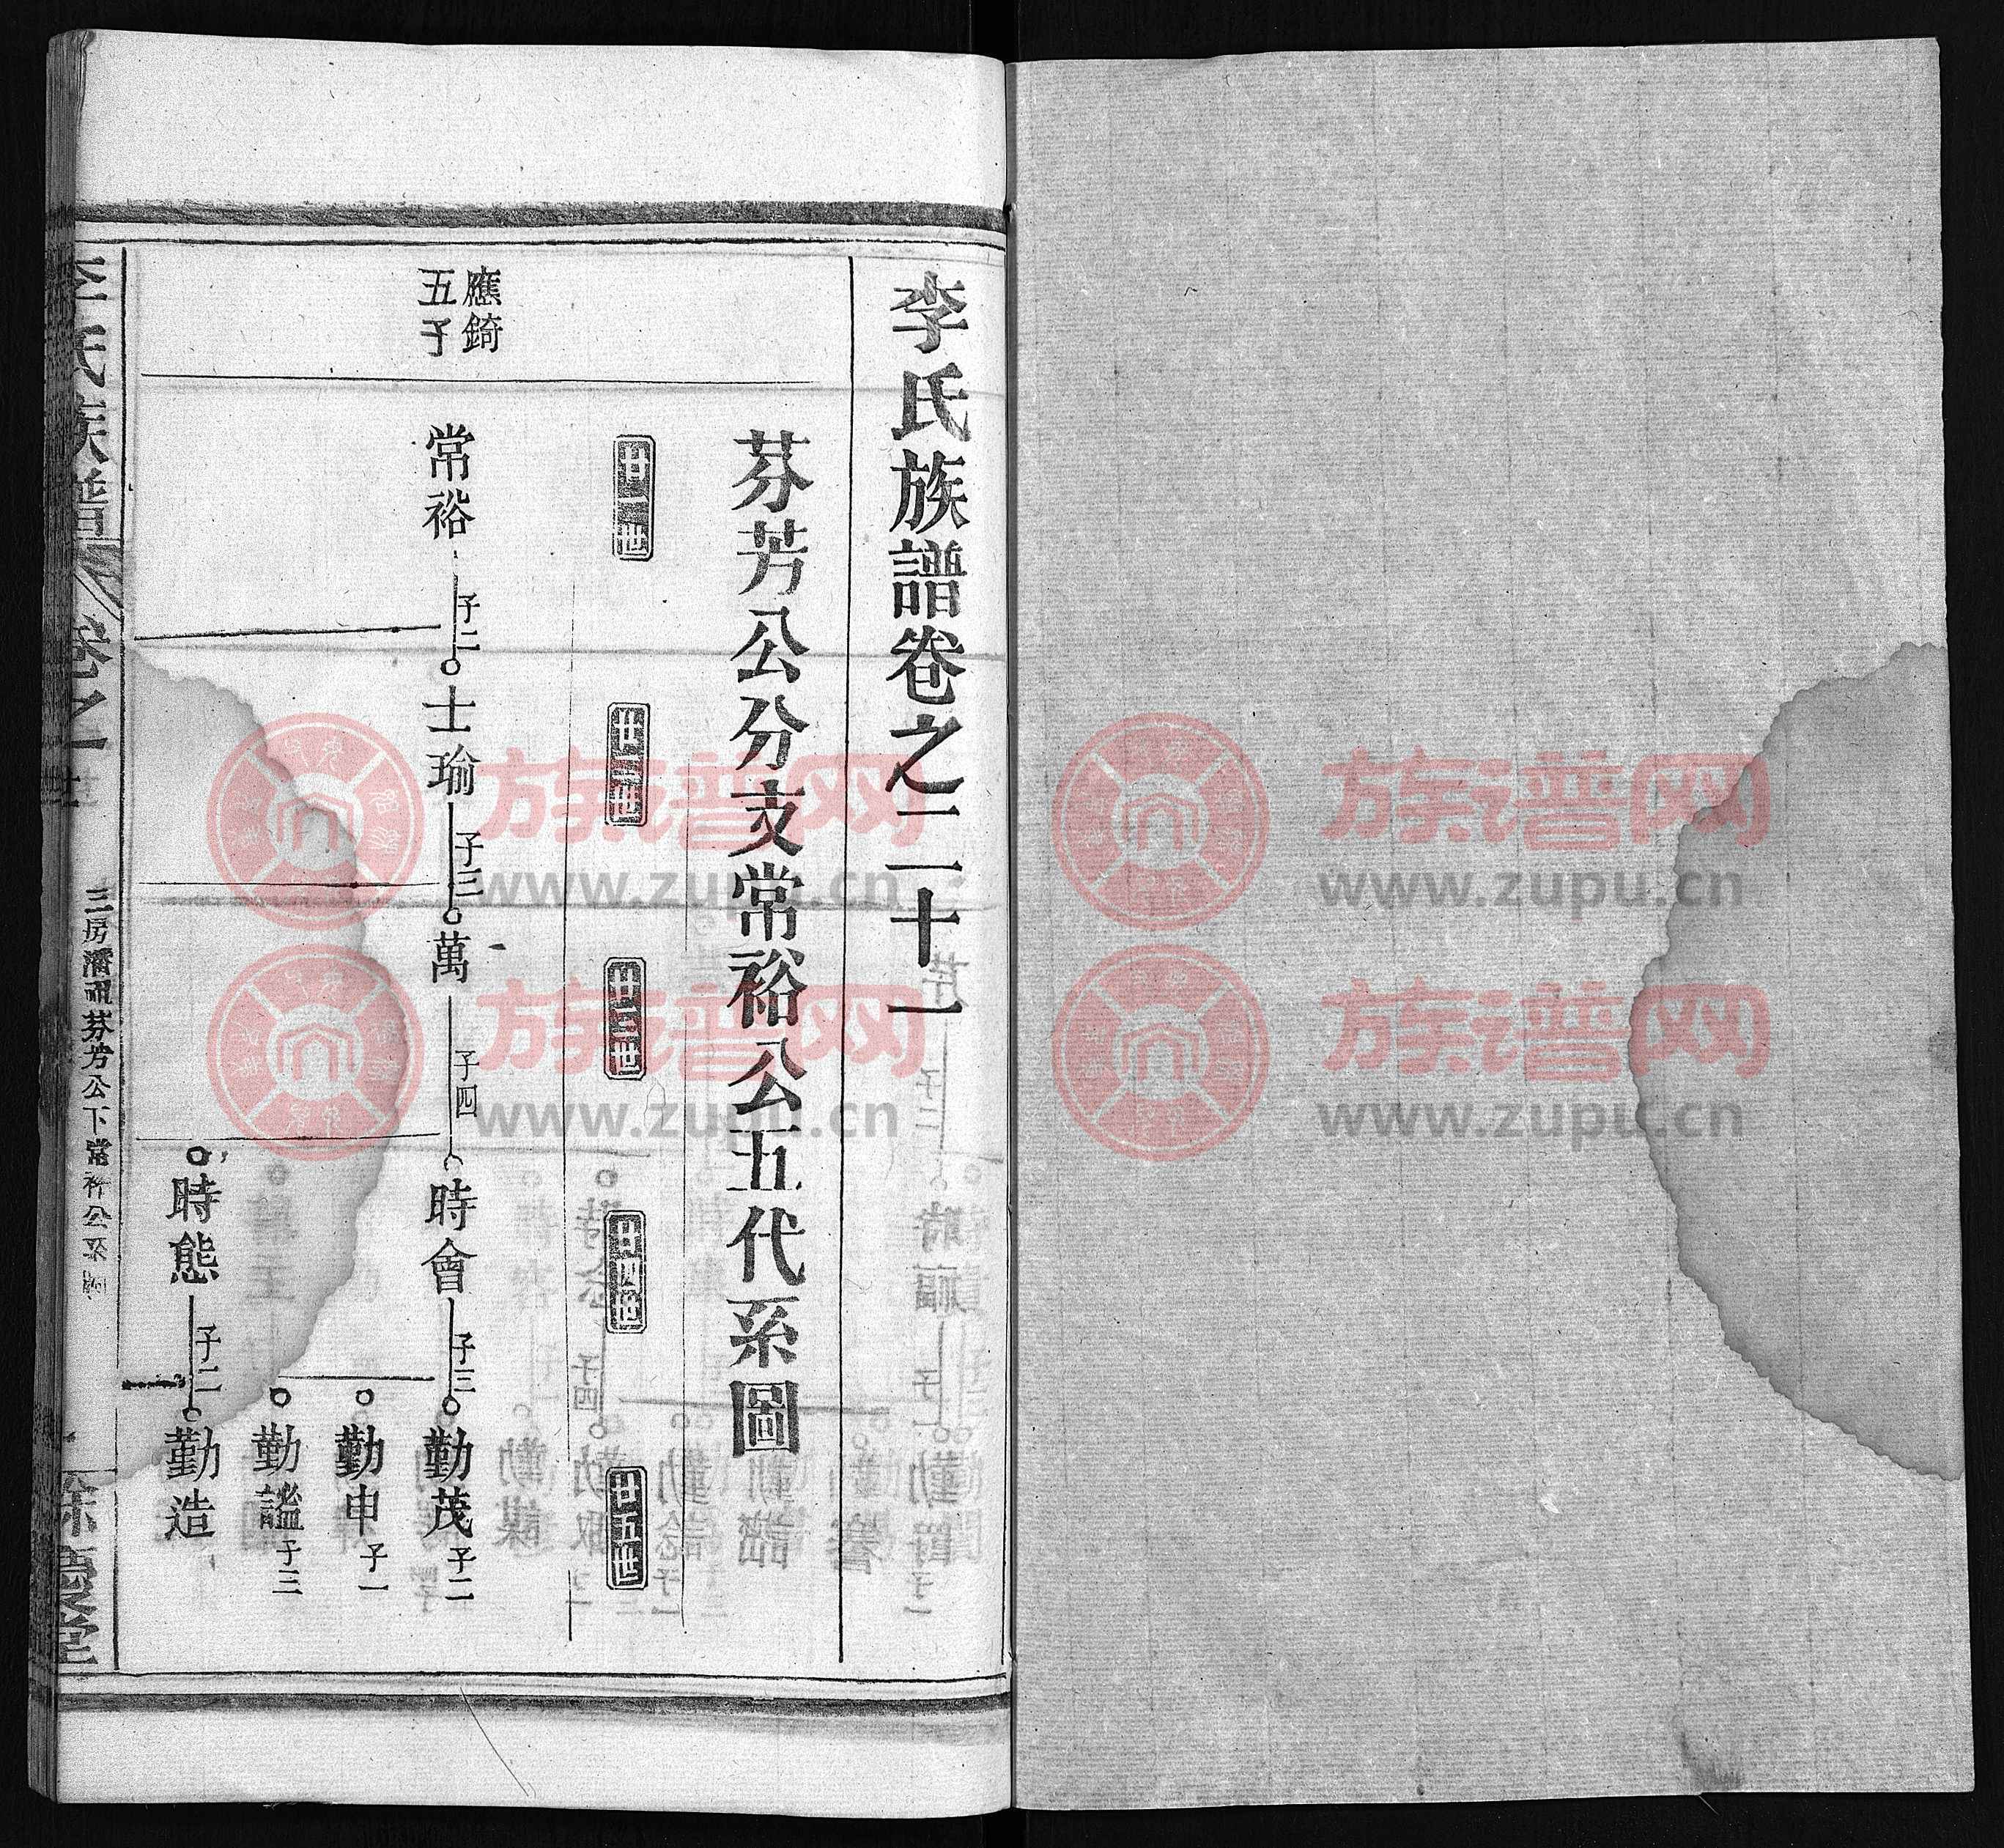 李氏族譜卷之二十一
芬芳公分支常裕公五代系圖
廿一世
廿二世
廿三世
廿四世
廿五世
應錡
五子
常裕
子二
士瑜
子三
萬
子四
時會
子三
勤茂
子二
勤申
子一
勤謐
子三
時態
子二
勤造
李氏族譜
卷之
三房濟
芬芳公下常裕公系圖
餘慶堂
族谱网
www.zupu.cn
族谱网
www.zupu.cn
族谱网
www.zupu.cn
族谱网
www.zupu.cn